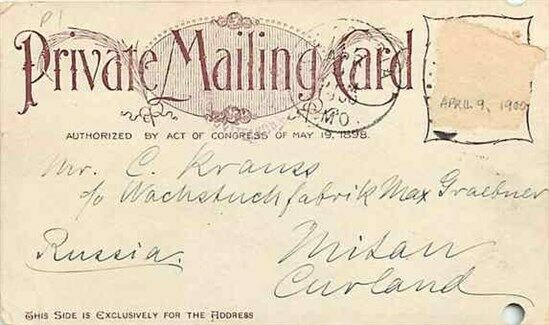 P1
Private Mailing Card
APRIL 9, 1900
MO.
AUTHORIZED BY ACT OF CONGRESS OF MAY 19, 1898.
Mr. C. Krauss
c/o Wachstuchfabrik Max Graebner
Russia.
Mitau
Curland
THIS SIDE IS EXCLUSIVELY FOR THE ADDRESS